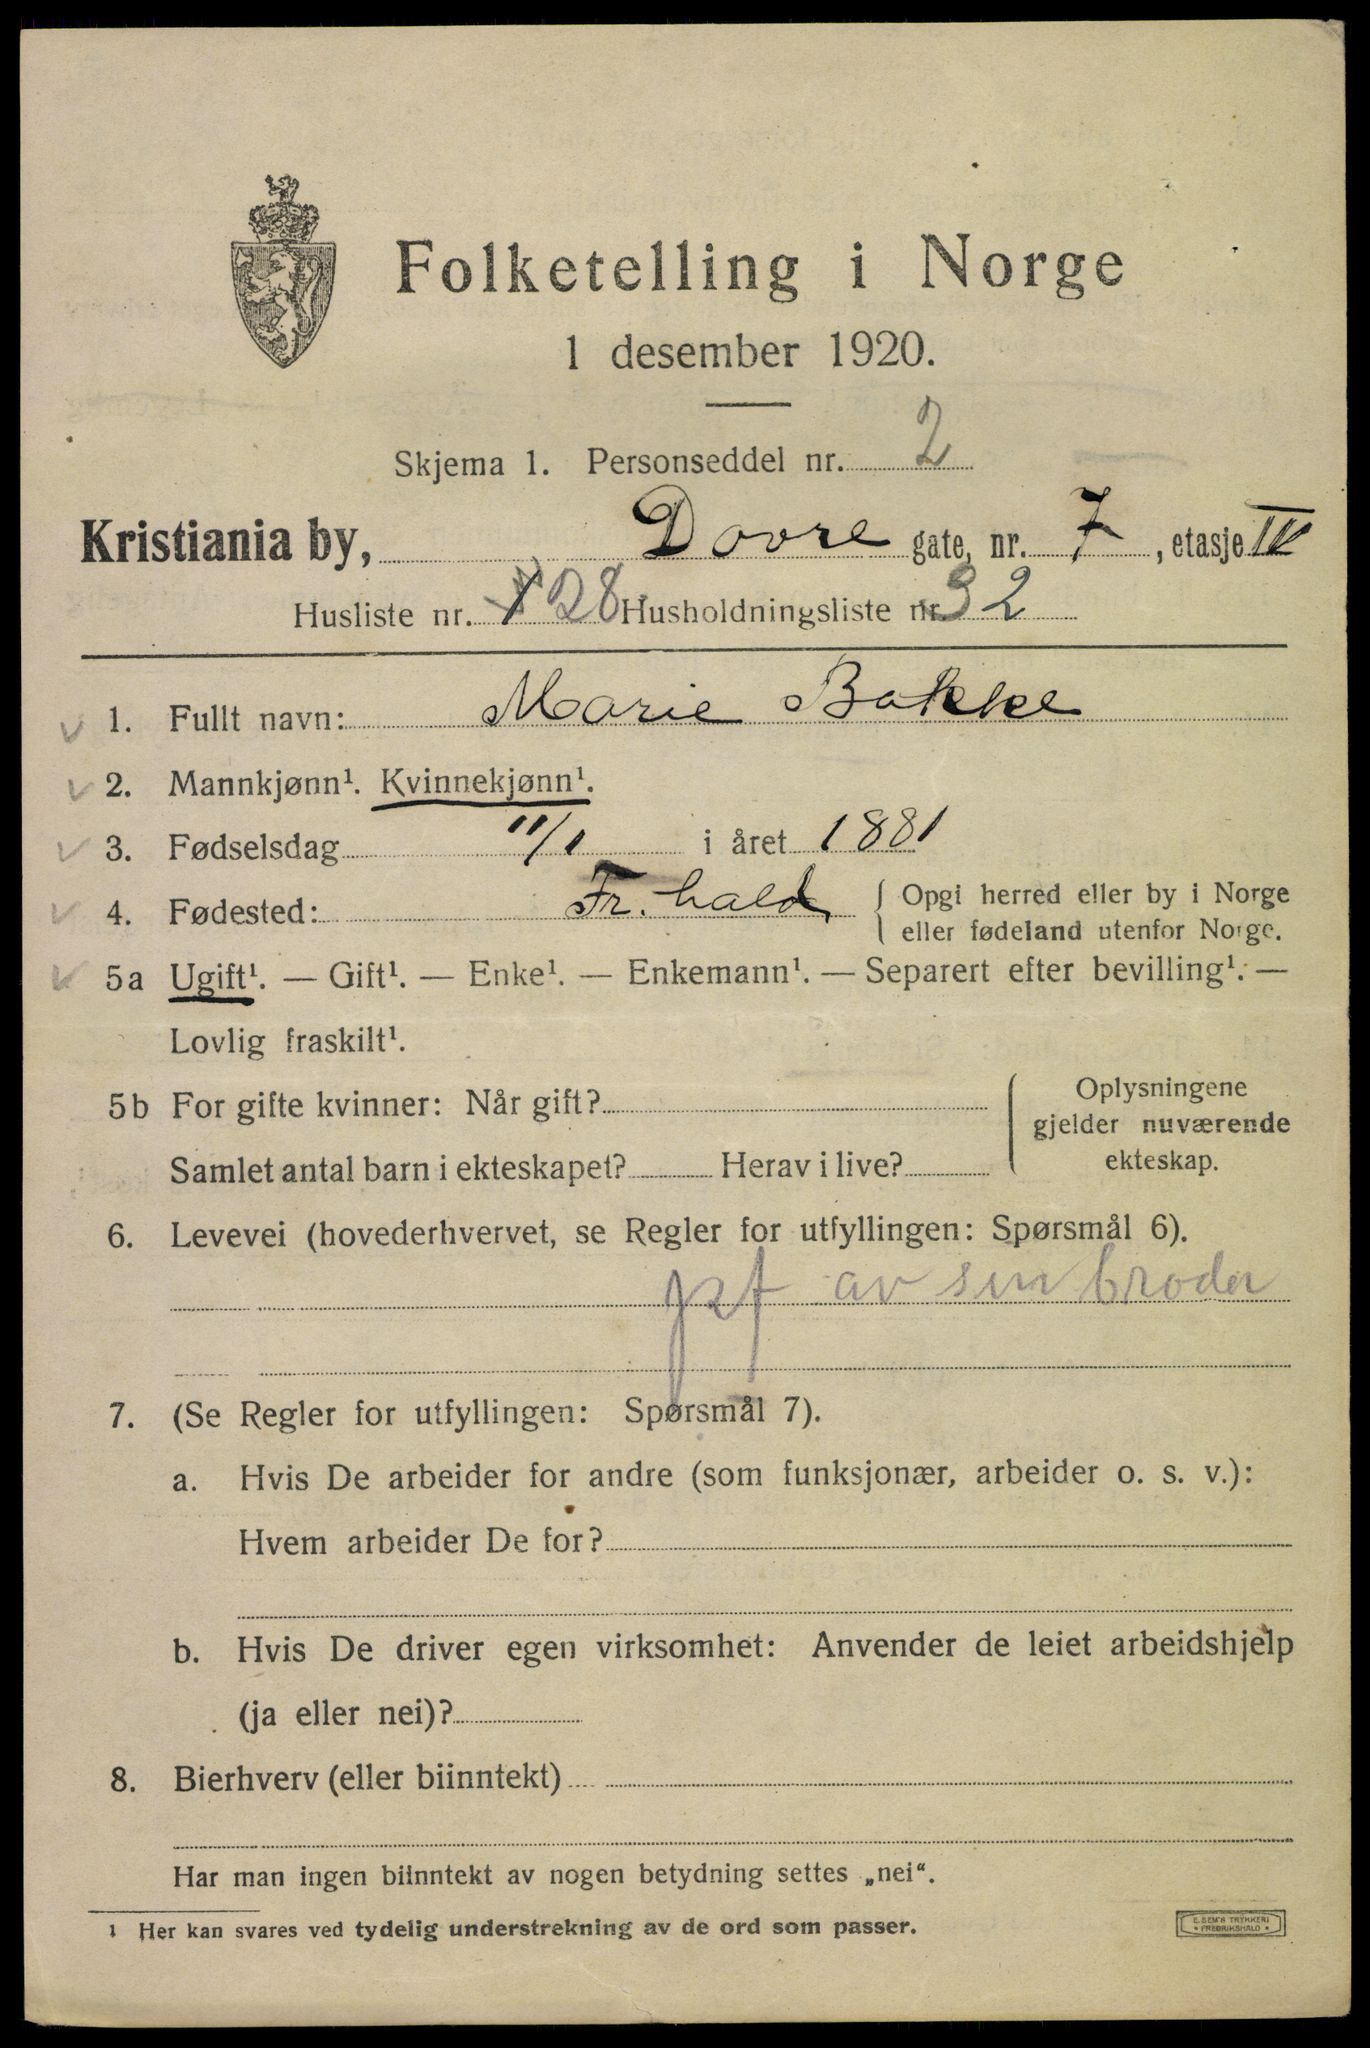 Folketelling i Norge
1 desember 1920.
Skjema 1. Personseddel nr. 2
Kristiania by, Dovre gate, nr. 7, etasje IV
Husliste nr. 28 Husholdningsliste nr. 32
1. Fullt navn: Marie Bakke
2. Mannkjønn¹. Kvinnekjønn¹.
3. Fødselsdag 11/1 i året 1881
4. Fødested: Fr.hald { Opgi herred eller by i Norge
eller fødeland utenfor Norge.
5a Ugift¹. — Gift¹. — Enke¹. — Enkemann¹. — Separert efter bevilling¹. —
Lovlig fraskilt¹.
5b For gifte kvinner: Når gift? { Oplysningene
gjelder nuværende
Samlet antal barn i ekteskapet? Herav i live? ekteskap.
6. Levevei (hovederhvervet, se Regler for utfyllingen: Spørsmål 6).
av sin broder
7. (Se Regler for utfyllingen: Spørsmål 7).
a. Hvis De arbeider for andre (som funksjonær, arbeider o. s. v.):
Hvem arbeider De for?
b. Hvis De driver egen virksomhet: Anvender de leiet arbeidshjelp
(ja eller nei)?
8. Bierhverv (eller biinntekt)
Har man ingen biinntekt av nogen betydning settes „nei“.
¹ Her kan svares ved tydelig understrekning av de ord som passer.
E. SEM'S TRYKKERI
• FREDRIKSHALD •